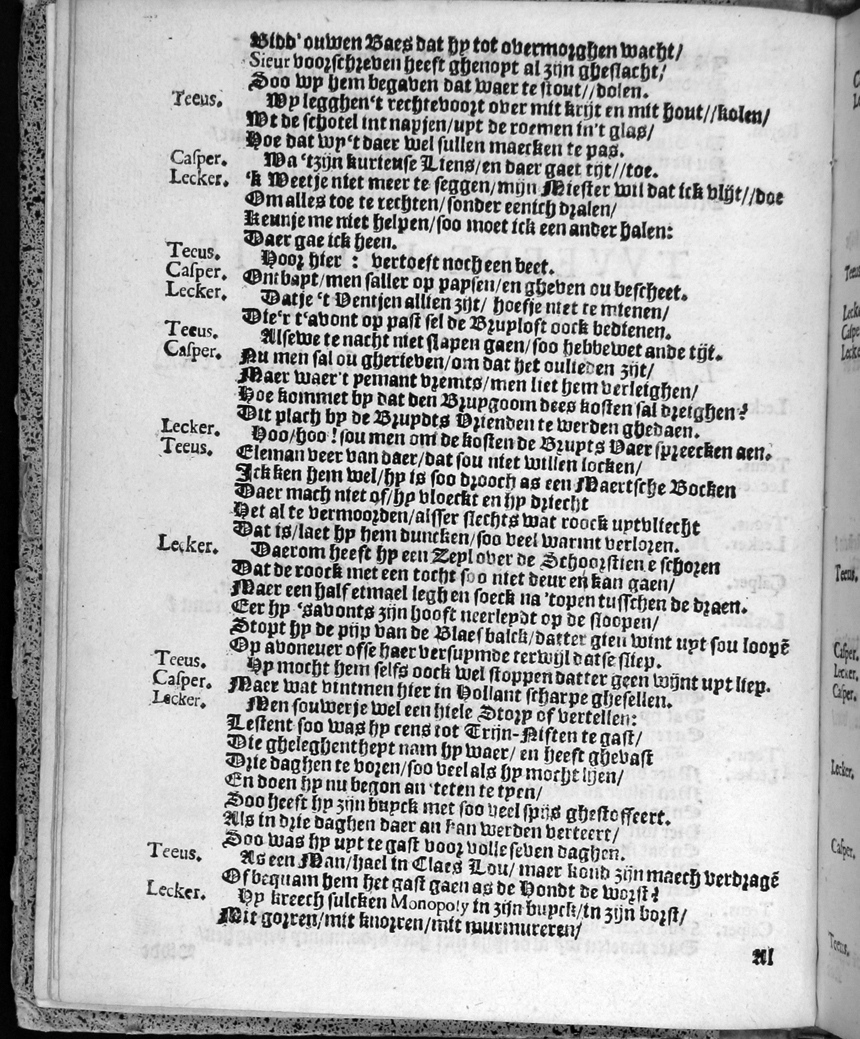 Bidd' ouwen Baes dat hy tot overmorghen wacht/
Sieur voorschreven heeft ghenopt al zijn gheslacht/
Soo wy hem begaven dat waer te stout//dolen.
Teeus. Wy legghen 't rechtevoort over mit krijt en mit hout//kolen/
Wt de schotel int napjen/uyt de roemen in't glas/
Hoe dat wy't daer wel sullen maecken te pas.
Casper. Wa 'tzijn kurieuse Liens/en daer gaet tijt//toe.
Lecker. 'k Weetje niet meer te seggen/mijn Miester wil dat ick vlijt//doe
Om alles toe te rechten/sonder eenich dralen/
Keunje me niet helpen/soo moet ick een ander halen:
Daer gae ick heen.
Teeus. Hoor hier : vertoeft noch een beet.
Casper. Ontbayt/men saller op paysen/en gheven ou bescheet.
Lecker. Datje 't Ventjen allien zijt/ hoefje niet te mienen/
Die'r t'avont op past sel de Bruyloft oock bedienen.
Teeus. Alsewe te nacht niet slapen gaen/soo hebbewet ande tijt.
Casper. Nu men sal ou gherieven/om dat het oulieden zijt/
Maer waer't yemant vremts/men liet hem verleighen/
Hoe kommet by dat den Bruygoom dees kosten sal dreighen?
Dit plach by de Bruydts Vrienden te werden ghedaen.
Lecker. Hoo/hoo! sou men om de kosten de Bruyts Vaer spreecken aen.
Teeus. Eleman veer van daer/dat sou niet willen locken/
Ick ken hem wel/hy is soo drooch as een Maertsche Bocken
Daer mach niet of/hy vloeckt en hy driecht
Het al te vermoorden/alsser slechts wat roock uytvliecht
Dat is/laet hy hem duncken/soo veel warmt verloren.
Lecker. Daerom heeft hy een Zeyl over de Schoorstien e schoren
Dat de roock met een tocht soo niet deur en kan gaen/
Maer een half etmael legh en soeck na 'topen tusschen de draen.
Eer hy 'savonts zijn hooft neerleydt op de stoopen/
Stopt hy de pijp van de Blaesbalck/datter gien wint uyt sou loopē
Op avoneuer ofse haer versuymde terwijl datse sliep.
Teeus. Hy mocht hem selfs oock wel stoppen datter geen wijnt uyt liep.
Casper. Maer wat vintmen hier in Hollant scharpe ghesellen.
Lecker. Men souwerje wel een hiele Story of vertellen:
Lestent soo was hy eens tot Trijn-Niften te gast/
Die gheleghentheyt nam hy waer/ en heeft ghevast
Drie daghen te voren/soo veel als hy mocht lijen/
En doen hy nu begon an 'teten te tyen/
Soo heeft hy zijn buyck met soo veel spijs ghestoffeert.
Als in drie daghen daer an kan werden verteert/
Soo was hy uyt te gast voor volle seven daghen.
Teeus. As een Man/hael in Claes Lou/ maer kond zijn maech verdragē
Of bequam hem het gast gaen as de Hondt de worst?
Lecker. Hy kreech sulcken Monopoly in zijn buyck/in zijn borst/
Mit gorren/mit knorren/mit murmureren/
Al